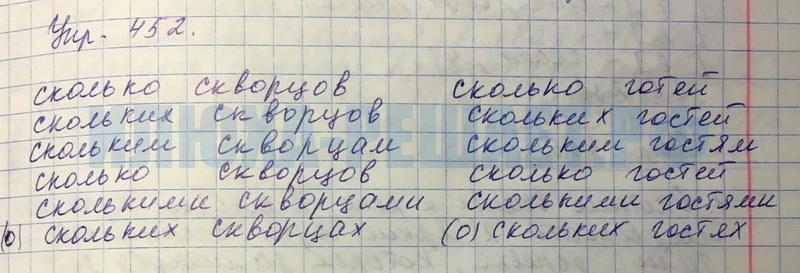 Упр. 452.
сколько скворцов сколько готей
скольких скворцов скольких гостей
скольким скворцам скольким гостям
сколько скворцов сколько гостей
сколькими скворцами сколькими гостями
(о) скольких скворцах (о) скольких гостях